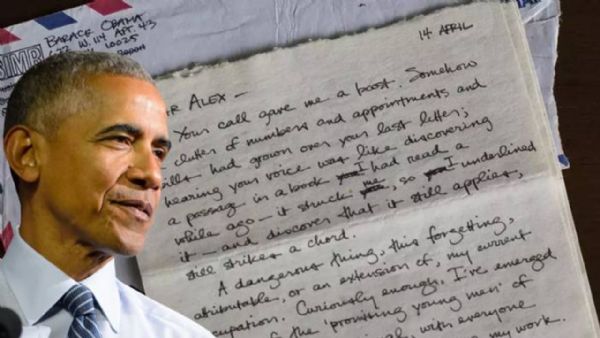 BARACK OBAMA
622 W. 114 APT. 43
10025
14 APRIL
ALEX —
Your call gave me a boost. Somehow
clutter of numbers and appointments and
had grown over your last letter;
hearing your voice was like discovering
a passage in a book I had read a
while ago — it struck me, so I underlined
it — and discover that it still applies,
still strikes a chord.
A dangerous thing, this forgetting,
attributable, or an extension of, my current
occupation. Curiously enough, I've emerged
of the 'promising young men' of
with everyone
my work.